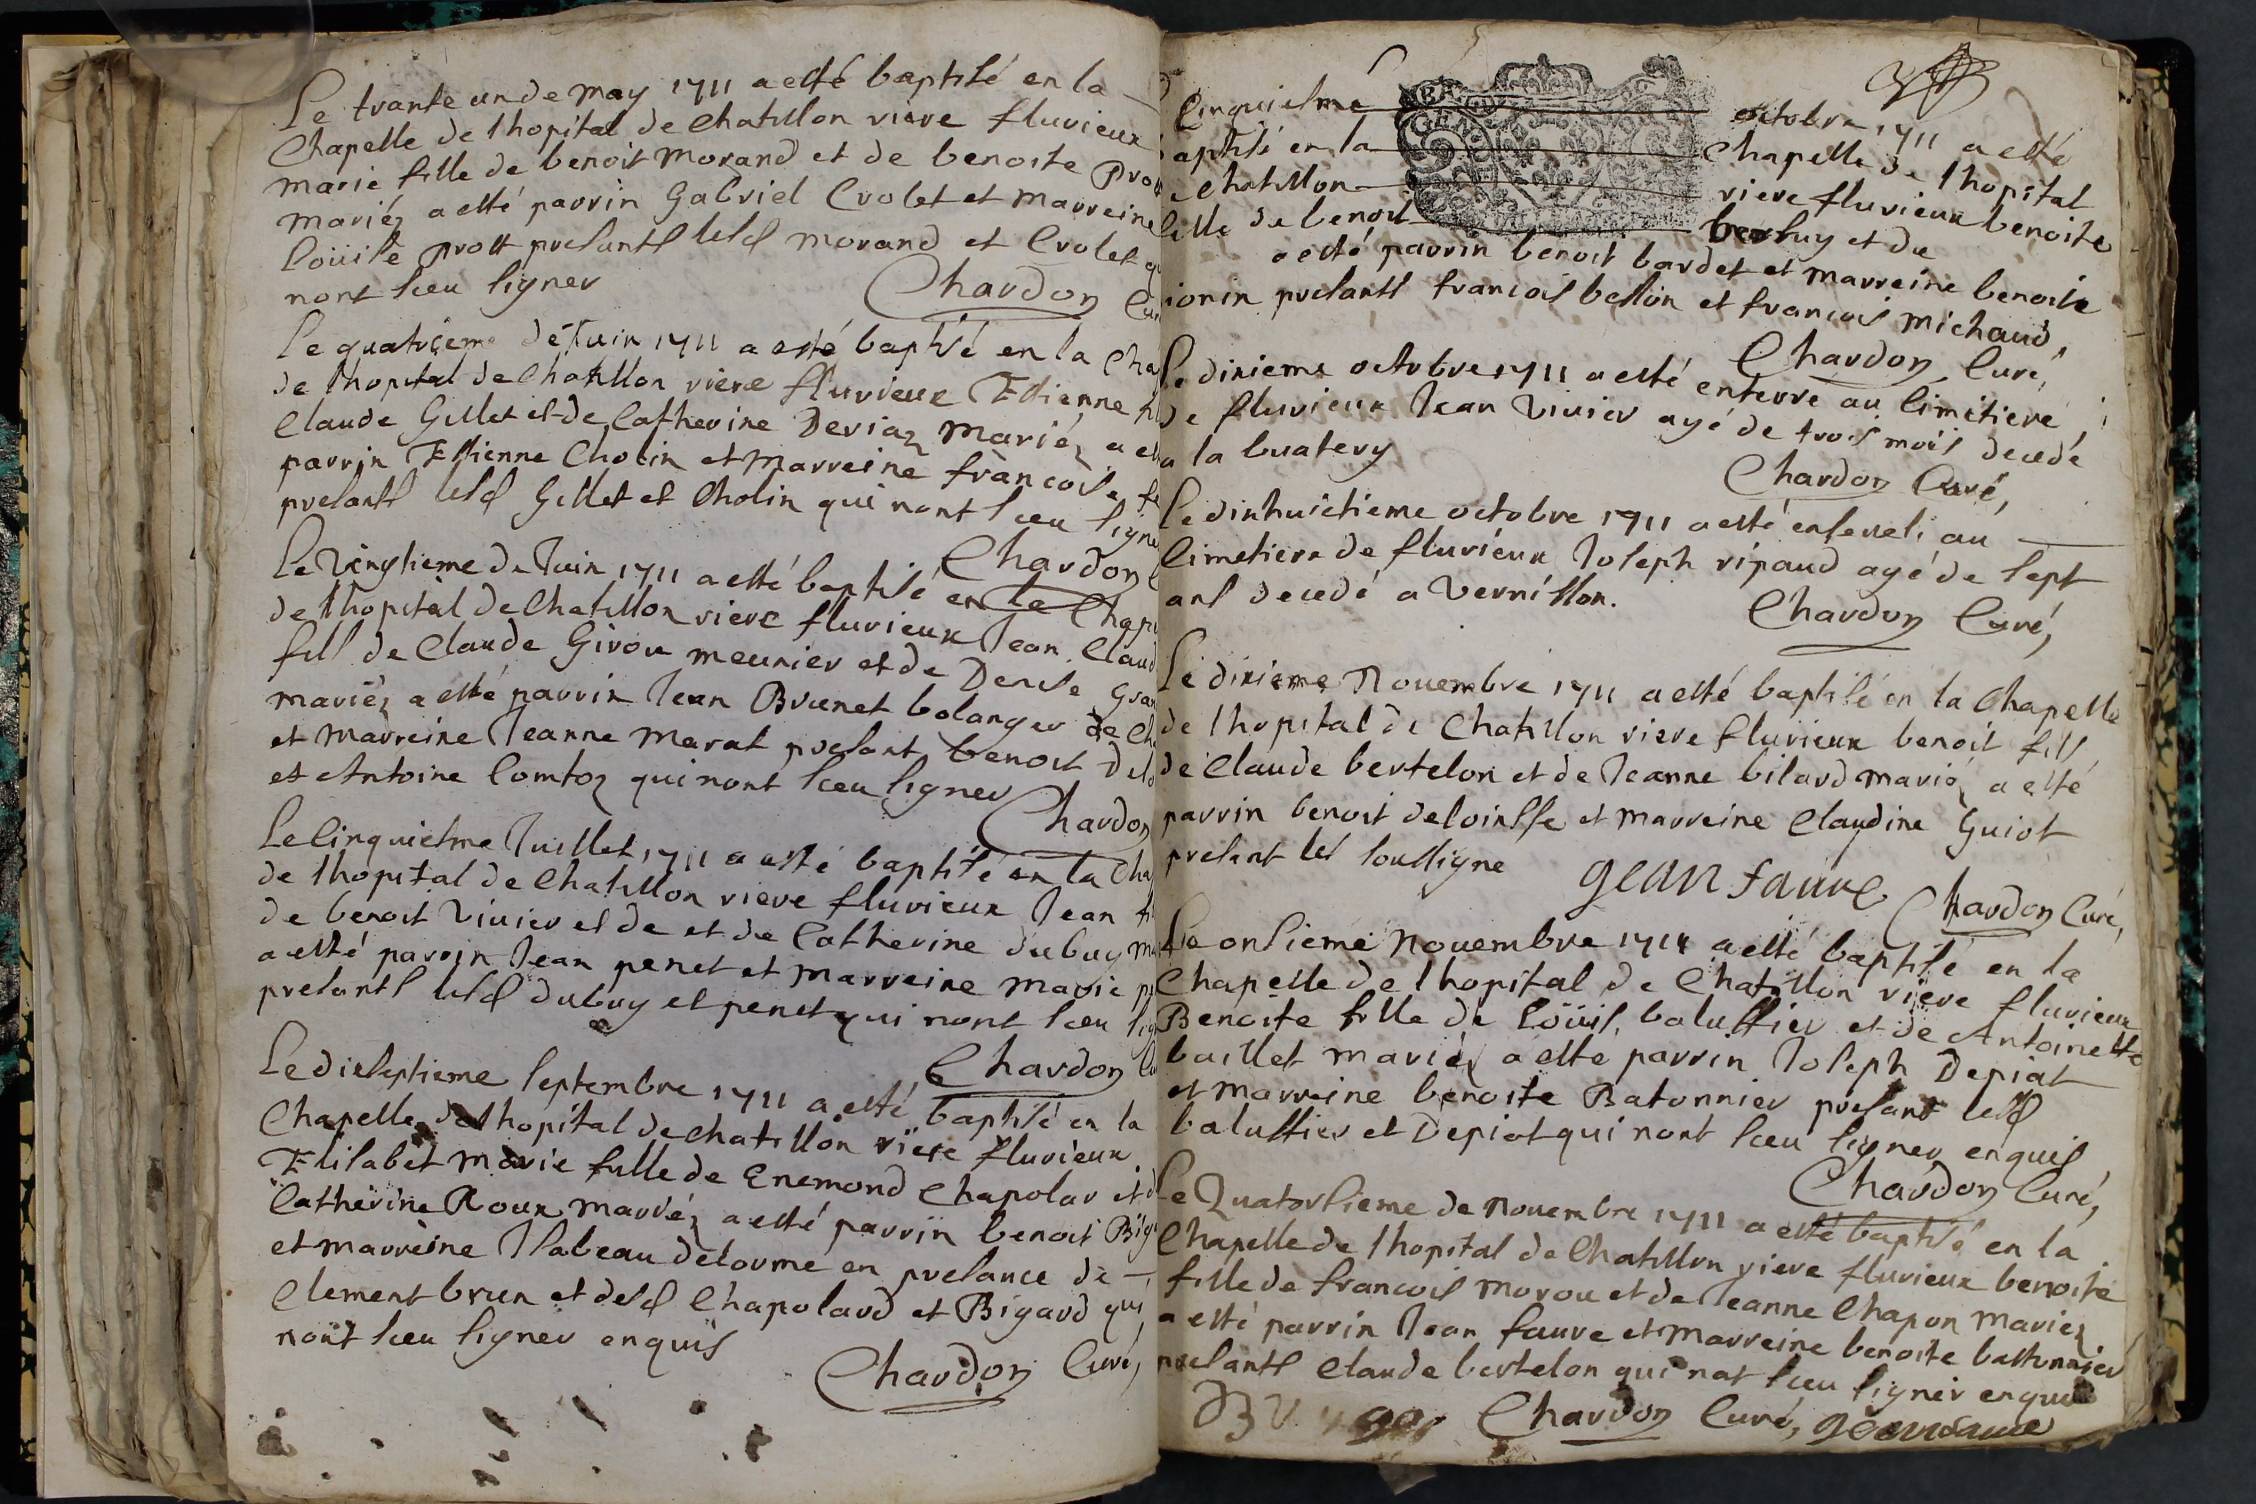 Le trante un de may 1711 a esté baptisé en la
Chapelle de lhopital de Chatillon riere fluvieux
marie fille de benoit morand et de benoite Prou
mariéz a esté parrin Gabriel Crolet et marreine
Loüise prost presants lesd morand et Crolet q
nont sceu signer
Chardon Cu
Le quatrieme de Juin 1711 a esté baptisé en la Cha
de lhopital de Chatillon riere fluvieux Estienne fi
Claude Gillet et de Catherine Deriaz mariéz a est
parrin Estienne Cholin et marreine francoise
presants lesd Gillet et Cholin qui nont sceu signe
Chardon
Le Vingtieme de Juin 1711 a esté baptisé en la Chape
de lhopital de Chatillon riere fluvieux Jean Claud
fils de Claude Girou meunier et de Denise Gran
mariéz a esté parrin Jean Brunet bolanger de Cha
et marreine Jeanne marat presant benoit
et Antoine Comtoz qui nont sceu signer
Chardon
Le Cinquiesme Juillet 1711 a esté baptisé en la Cha
de lhopital de Chatillon riere fluvieux Jean fi
de benoit Vivier et de et de Catherine dubuy ma
a esté parrin Jean penet et marreine marie
presants lesd dubuy et penet qui nont sceu sig
Chardon Cu
Le dixseptieme septembre 1711 a esté baptisé en la
Chapelle de lhopital de chatillon riere fluvieux
Elisabet marie fille de Enemond Chapolar et d
Catherine Roux mariéz a esté parrin benoit Biga
et marreine Isabeau delorme en presance de
Clement brun et desd Chapolard et Bigard qui
nont sceu signer enquis
Chardon Curé,
Cinquiesme octobre 1711 a esté
aptisé en la Chapelle de lhopital
e Chatillon riere fluvieux benoite
fille de benoit berluy et de
a esté parrin benoit bardet et marreine benoite
ionin presants francois bellon et francois michaud,
Chardon Curé,
Le dixieme octobre 1711 a esté enterré au Cimetiere
de fluvieux Jean Vivier agé de trois mois decedé
a la buatery
Chardon Curé,
Le dixhuictieme octobre 1711 a esté enseveli au
Cimetiere de fluvieux Joseph ripaud agé de sept
ans decedé a Vernillon.
Chardon Curé,
Le dixieme Novembre 1711 a esté baptisé en la Chapelle
de lhopital de Chatillon riere fluvieux benoit fils
de Claude bertelon et de Jeanne bilard mariéz a esté
parrin benoit deloinsse et marreine Claudine Guiot
presant les soussigne
gean faure
Chardon Curé,
Le onsieme Novembre 1711 a esté baptisé en la
Chapelle de lhopital de Chatillon riere fluvieux
Benoite fille de Loüis baluffier et de Antoinette
baillet mariéz a esté parrin Joseph Depiat
et marreine benoite Batonnier presant lesd
baluffier et Depiat qui nont sceu signer enquis
Chardon Curé,
Le Quatorsieme de Novembre 1711 a esté baptisé en la
Chapelle de lhopital de Chatillon riere fluvieux benoite
fille de francois morou et de Jeanne Chapon mariez
a esté parrin Jean faure et marreine benoite bastonnier
presants Claude bertelon qui nat sceu signer enquis
Chardon Curé, gean faure